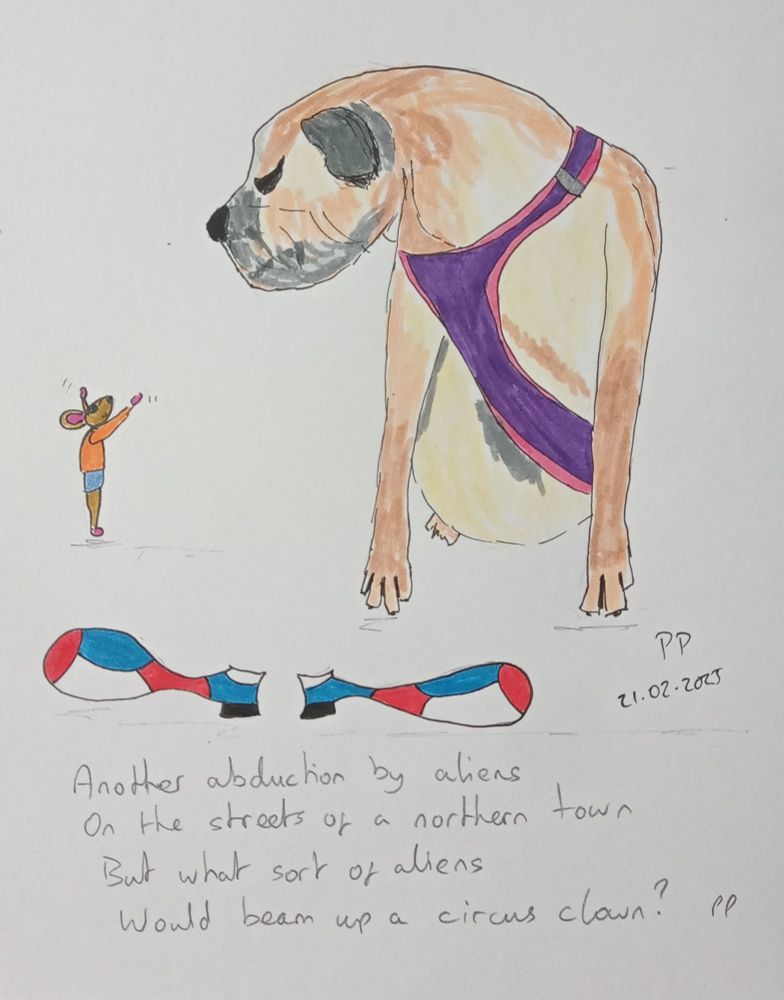 PP
21.02.2025
Another abduction by aliens
On the streets of a northern town
But what sort of aliens
Would beam up a circus clown? PP